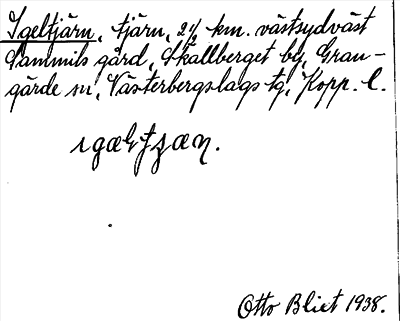 Igeltjärn, tjärn, 2½ km. västsydväst
Sammils gård, Skallberget by, Gran-
gärde sn, Västerbergslags tg, Kopp. l.
Otto Blixt 1938.